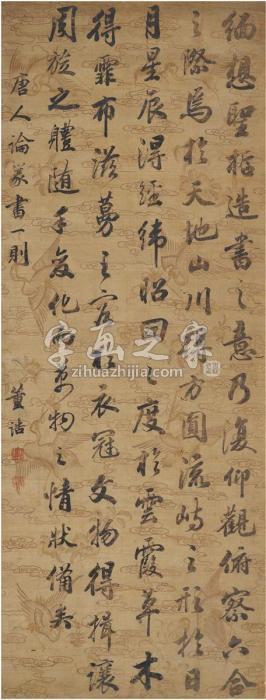 緬想聖哲造書之意乃復仰觀俯察六合
之際焉於天地山川得方圓流峙之形於日
月星辰得經緯昭回之度於雲霞草木
得霏布滋蔓之容於衣冠文物得揖讓
周旋之體隨手變化而萬物之情狀備矣
唐人論篆書一則
董誥
字画之家
zihuazhijia.com